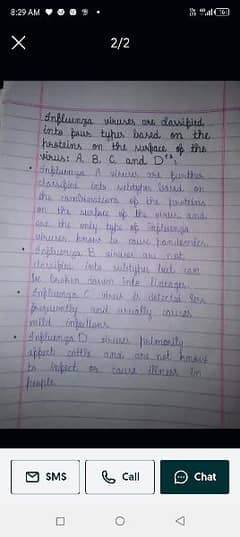 8:29 AM
2/2
Influenza viruses are classified
into four types based on the
proteins on the surface of the
virus: A, B, C, and D
Influenza A viruses are further
classified into subtypes based on
the combinations of the proteins
on the surface of the virus and
are the only type of influenza
viruses known to cause pandemics.
Influenza B viruses are not
classified into subtypes but can
be broken down into lineages.
Influenza C virus is detected less
frequently and usually causes
mild infections.
Influenza D viruses primarily
affect cattle and are not known
to infect or cause illness in
people.
SMS
Call
Chat